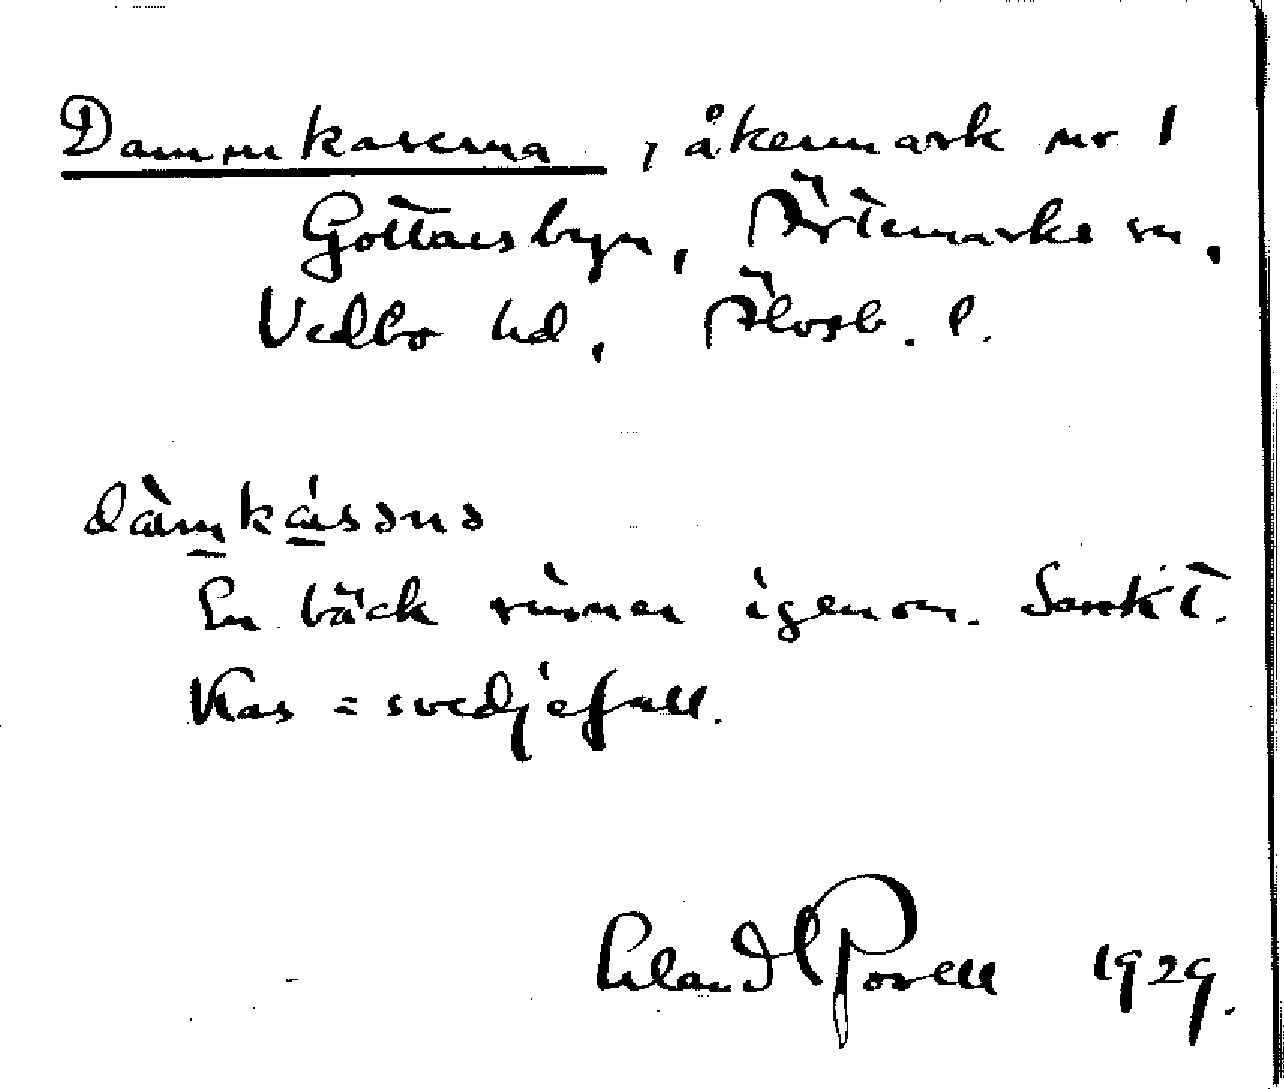 Dammkaserna, åkermark nr 1
Gottarsbyn, Ärtemarks sn.
Vedbo hd, Älvsb. l.
dàmkásənə
En bäck rinner igenom. Sankt.
Kas = svedjefall.
Erland Rosell 1929.